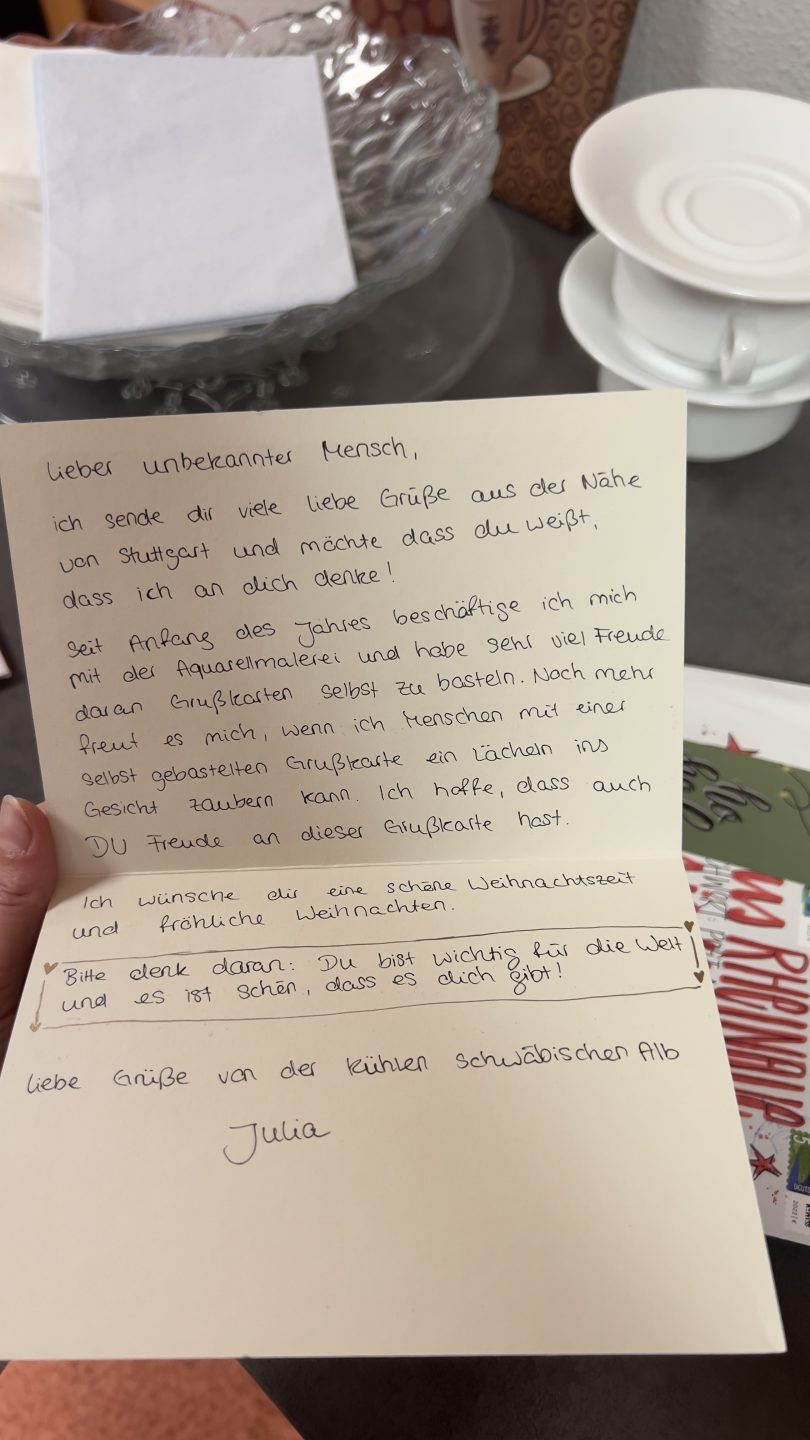 Lieber unbekannter Mensch,
ich sende dir viele liebe Grüße aus der Nähe
von Stuttgart und möchte dass du weißt,
dass ich an dich denke!
Seit Anfang des Jahres beschäftige ich mich
mit der Aquarellmalerei und habe sehr viel Freude
daran Grußkarten selbst zu basteln. Noch mehr
freut es mich, wenn ich Menschen mit einer
selbst gebastelten Grußkarte ein Lächeln ins
Gesicht zaubern kann. Ich hoffe, dass auch
DU Freude an dieser Grußkarte hast.
Ich wünsche dir eine schöne Weihnachtszeit
und fröhliche Weihnachten.
Bitte denk daran: Du bist wichtig für die Welt
und es ist schön, dass es dich gibt!
Liebe Grüße von der kühlen schwäbischen Alb
Julia
ho